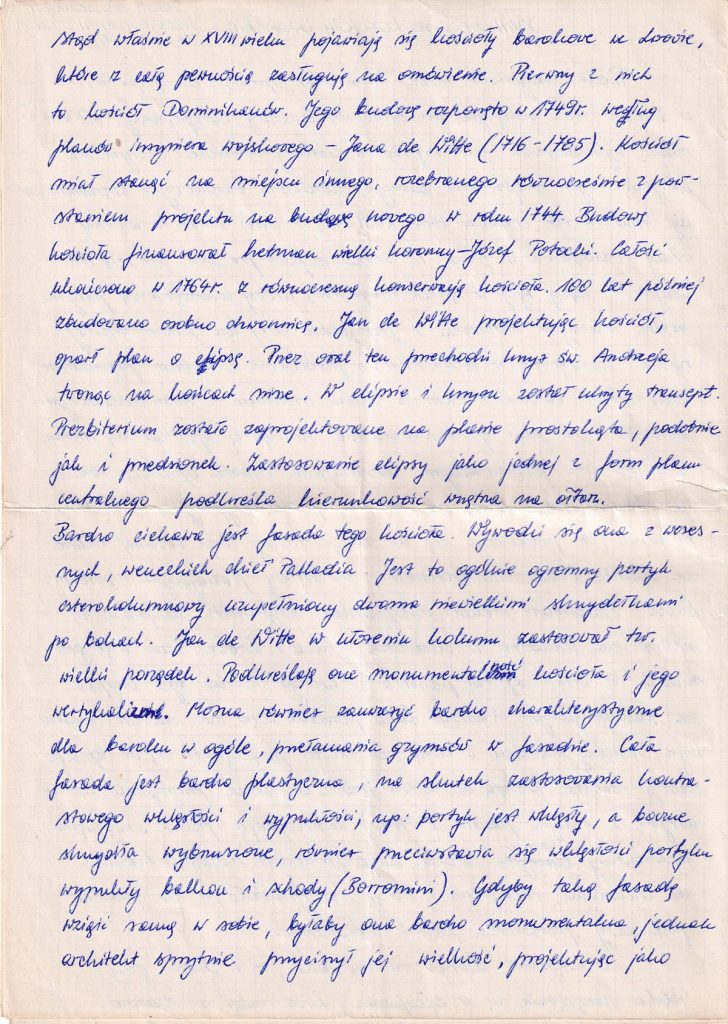 stąd właśnie w XVIII wieku pojawiają się kościoły barokowe we Lwowie,
które z całą pewnością zasługują na omówienie. Pierwszy z nich
to kościół Dominikanów. Jego budowę rozpoczęto w 1749r. według
planów inżyniera wojskowego – Jana de Witte (1716 - 1785). Kościół
miał stanąć na miejscu innego, rozebranego równocześnie z pow-
staniem projektu na budowę nowego w roku 1744. Budowę
kościoła finansował hetman wielki koronny – Józef Potocki. Całość
ukończono w 1764r. z równoczesną konserwacją kościoła. 100 lat później
zbudowano osobno dzwonnicę. Jan de Witte projektując kościół,
oparł plan o elipsę. Przez owal ten przechodzi krzyż św. Andrzeja
tworząc na końcach nisze. W elipsie i krzyżu został ukryty transept.
Prezbiterium zostało zaprojektowane na planie prostokąta, podobnie
jak i przedsionek. Zastosowanie elipsy jako jednej z form planu
centralnego podkreśla kierunkowość wnętrza na ołtarz.
Bardzo ciekawa jest fasada tego kościoła. Wywodzi się ona z wczes-
nych, weneckich dzieł Palladia. Jest to ogólnie ogromny portyk
czterokolumnowy uzupełniony dwoma niewielkimi skrzydełkami
po bokach. Jan de Witte w ułożeniu kolumn zastosował tzw.
wielki porządek. Podkreślają one monumentalność kościoła i jego
wertykalizm. Można również zauważyć bardzo charakterystyczne
dla baroku w ogóle, przełamania gzymsów w fasadzie. Cała
fasada jest bardzo plastyczna, na skutek zastosowania kontra-
stowego wklęsłości i wypukłości, np: portyk jest wklęsły, a boczne
skrzydła wybrzuszone, również przeciwstawia się wklęsłości portyku
wypukły balkon i schody (Borromini). Gdyby taką fasadę
wziąść samą w sobie, byłaby ona bardzo monumentalna, jednak
architekt sprytnie przyciszył jej wielkość, projektując jako